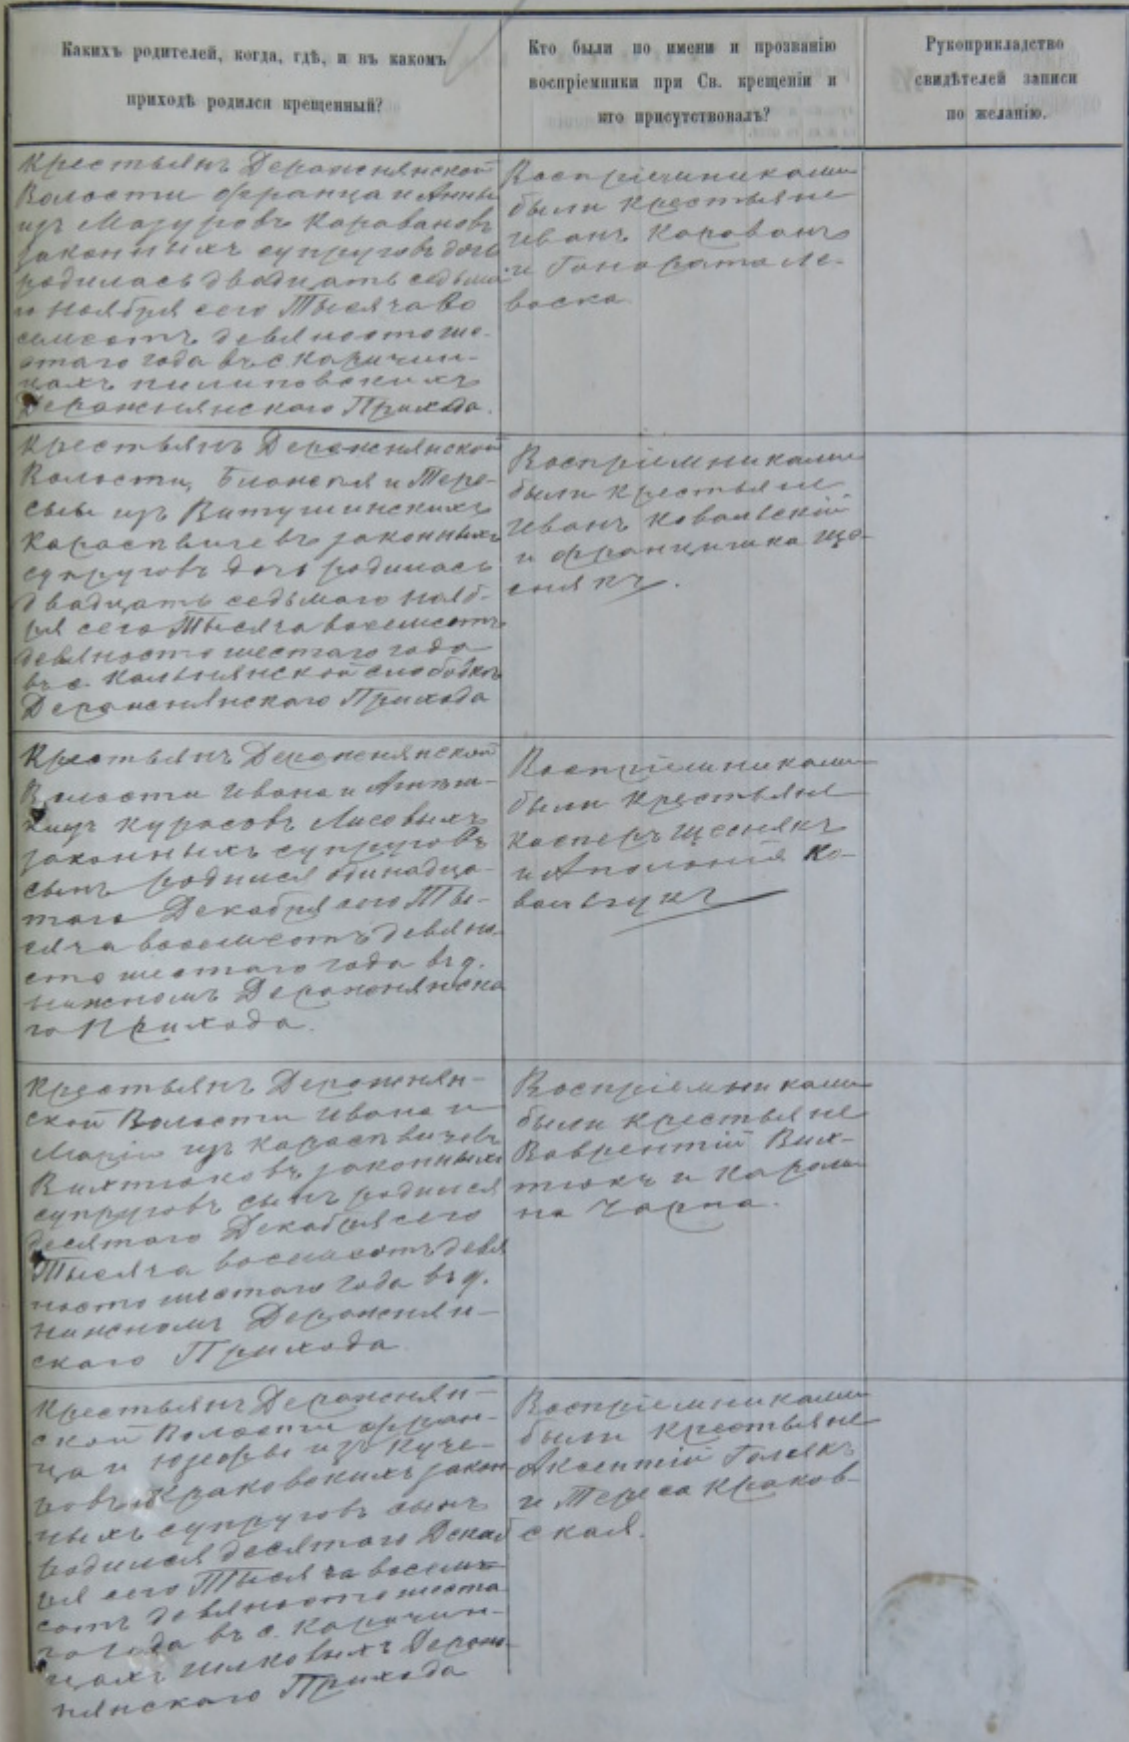 Какихъ родителей, когда, гдѣ, и въ какомъ
приходѣ родился крещенный?
Кто были по имени и прозванію
воспріемники при Св. крещеніи и
кто присутствовалъ?
Рукоприкладство
свидѣтелей записи
по желанію.
Крестьянъ Деражнянской
Волости Франца и Анны
изъ Мазуровъ Каравановъ
законныхъ супруговъ дочь
родилась двадцать седьма
го Ноября сего Тысяча во
семсотъ девяностоше-
стаго года въ с. Каричин-
цахъ пилиповскихъ
Деражнянскаго Прихода.
Воспріемниками
были крестьяне
Иванъ Караванъ
и Гонората Ле-
васка
Крестьянъ Деражнянской
Волости, и Тере-
сыи изъ Витушинскихъ
Караспвичевъ законныхъ
супруговъ дочь родилась
двадцать седьмаго Нояб-
ря сего Тысяча восемсотъ
девяносто шестаго года
въ с. слободкѣ
Деражнянскаго Прихода
Воспріемниками
были крестьяне
Иванъ Ковальскій
и Францишка Ще-
снякъ.
Крестьянъ Деражнянской
Волости Ивана и
изъ Курасовъ Лисовыхъ
законныхъ супруговъ
сынъ родился одинадца-
таго Декабря сего Ты-
сяча восемсотъ девяно-
сто шестаго года въ д.
Нижномъ Деражнянска
го Прихода.
Воспріемниками
были крестьяне
Касперъ Щеснякъ
и Аполонія Ко-
вальчукъ
Крестьянъ Деражнян-
ской Волости Ивана и
Маріи изъ Караспвичевъ
Вихтюковъ законныхъ
супруговъ сынъ родился
десятаго Декабря сего
Тысяча восемсотъ девя
носто шестаго года въ д.
Нижномъ Деражнян-
скаго Прихода
Воспріемниками
были крестьяне
Вавренетій Вих-
тюкъ и Кароли
на Чарна.
Крестьянъ Деражнян-
ской Волости Фран-
ца и Юзефы изъ Куче-
ровъ Краковскихъ закон
ныхъ супруговъ сынъ
родился десятаго Декаб
ря сего Тысяча восемь
сотъ девяносто шеста
го года въ с. Каричин-
цахъ Дераж-
нянскаго Прихода
Воспріемниками
были крестьяне
Аксентій Голякъ
и Тереса Краков-
ская.